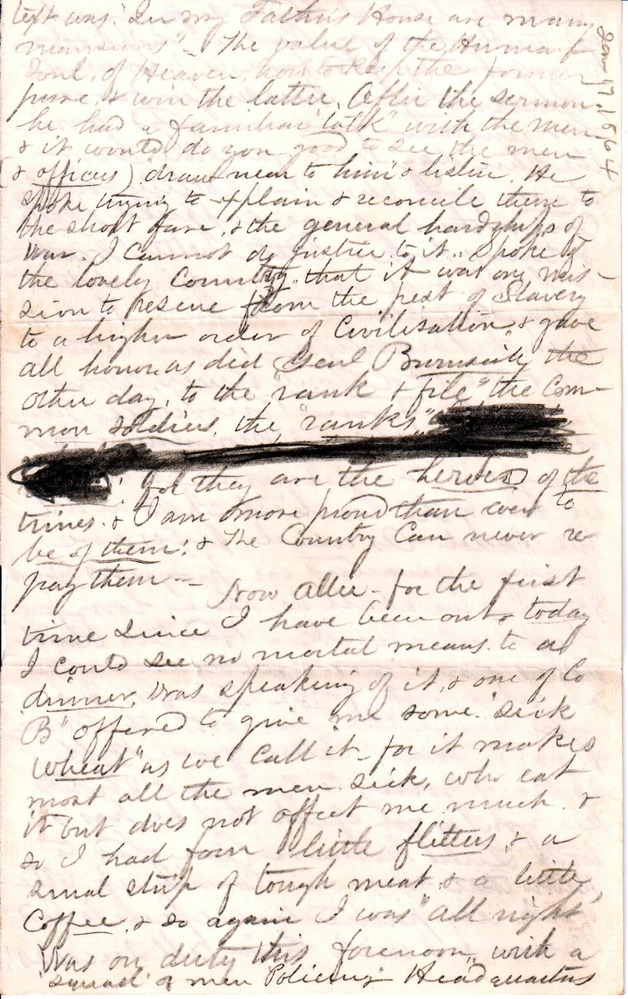 text was. "In my Father's House are many
mansions" - The value of the Human
Soul, of Heaven, how to keep the former
pure, & win the latter. After the sermon
he had a familiar "talk" with the men
& it would do you good to see the men
& officers) draw near to him & listen. He
spoke trying to explain & reconcile them to
the short fare, & the general hardships of
war. I cannot do justice to it. Spoke of
the lovely Country, "that it was our mis-
sion to rescue from the pest of Slavery
to a higher order of Civilisation, & gave
all honor as did Genl Burnside the
other day, to the "rank & file", the Com-
mon soldiers, the "ranks"
for they are the heroes of the
times. & I am more proud than ever to
be of them! & The Country Can never re-
pay them -
Now Allie - for the first
time since I have been out & today
I could see no mortal means to a
dinner, was speaking of it, & one of Co
B" offered to give me some "sick
wheat" as we call it - for it makes
most all the men sick, who eat
it but does not affect me much. &
so I had four little flitters, & a
small strip of tough meat, & a little
Coffee, & so again I was "all right"
Was on duty this forenoon, with a
"squad" of men "Policing" Headquarters
Jan 17. 1864